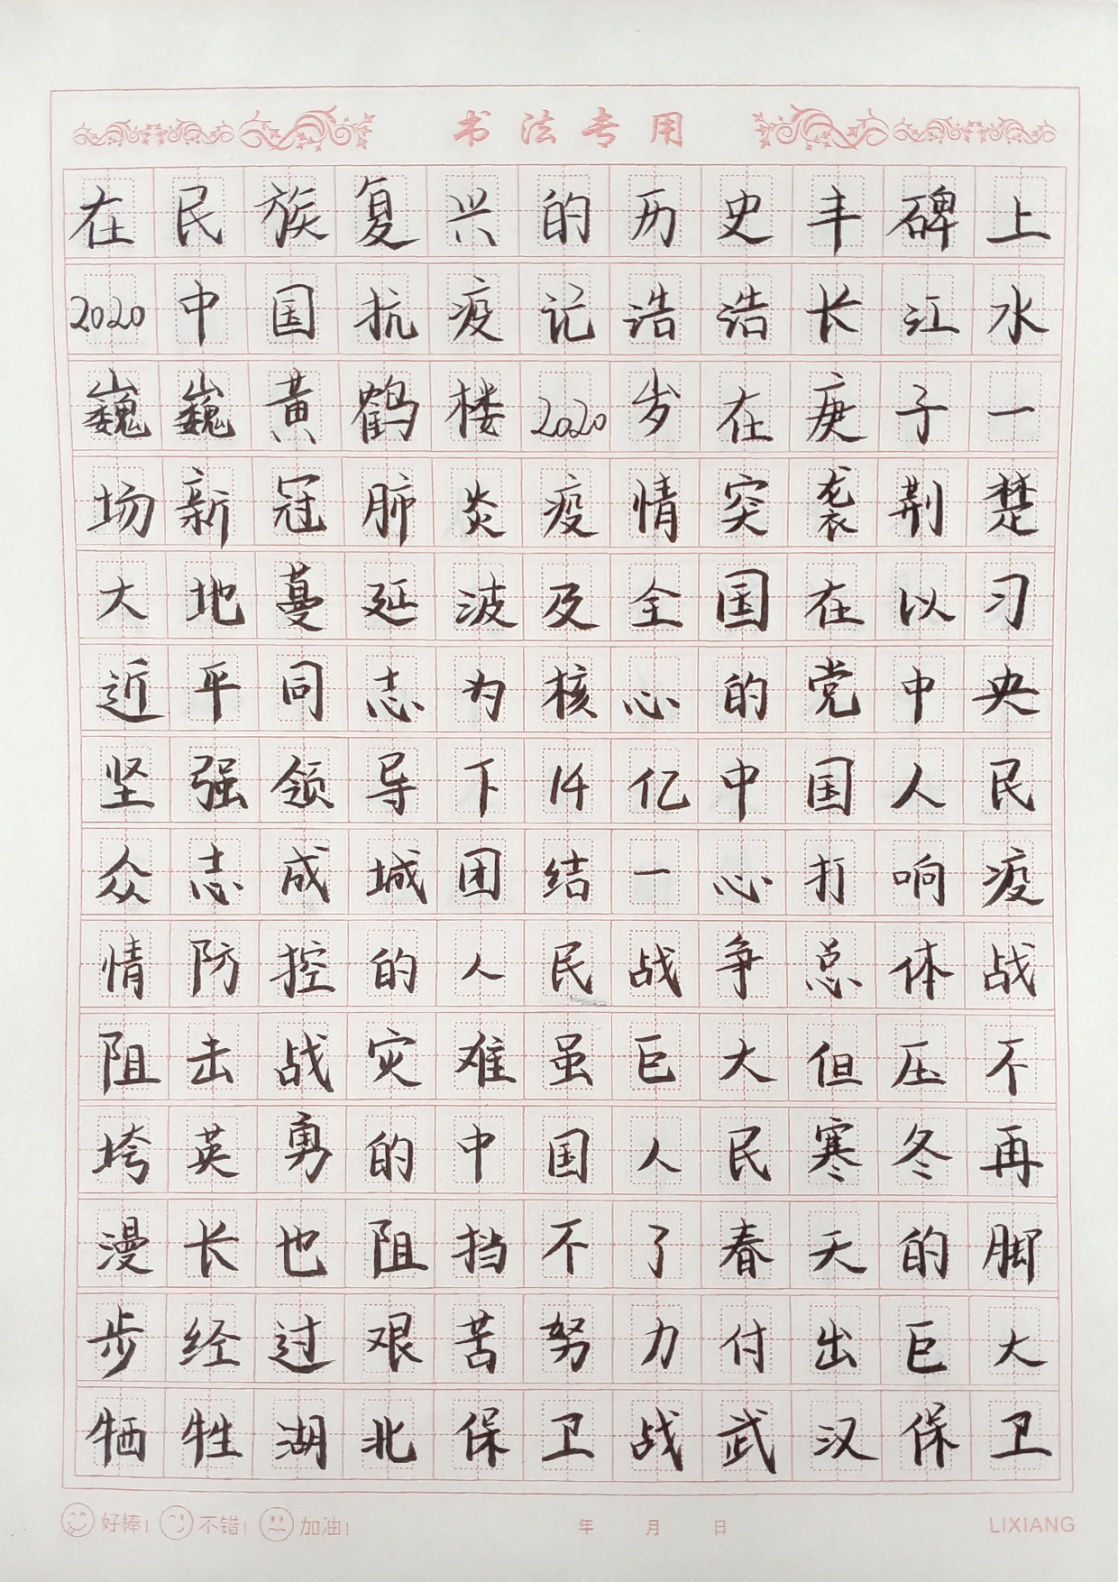 书法专用
在民族复兴的历史丰碑上
2020中国抗疫记浩浩长江水
巍巍黄鹤楼2020岁在庚子一
场新冠肺炎疫情突袭荆楚
大地蔓延波及全国在以习
近平同志为核心的党中央
坚强领导下14亿中国人民
众志成城团结一心打响疫
情防控的人民战争总体战
阻击战灾难虽巨大但压不
垮英勇的中国人民寒冬再
漫长也阻挡不了春天的脚
步经过艰苦努力付出巨大
牺牲湖北保卫战武汉保卫
好棒! 不错! 加油! 年 月 日 LIXIANG